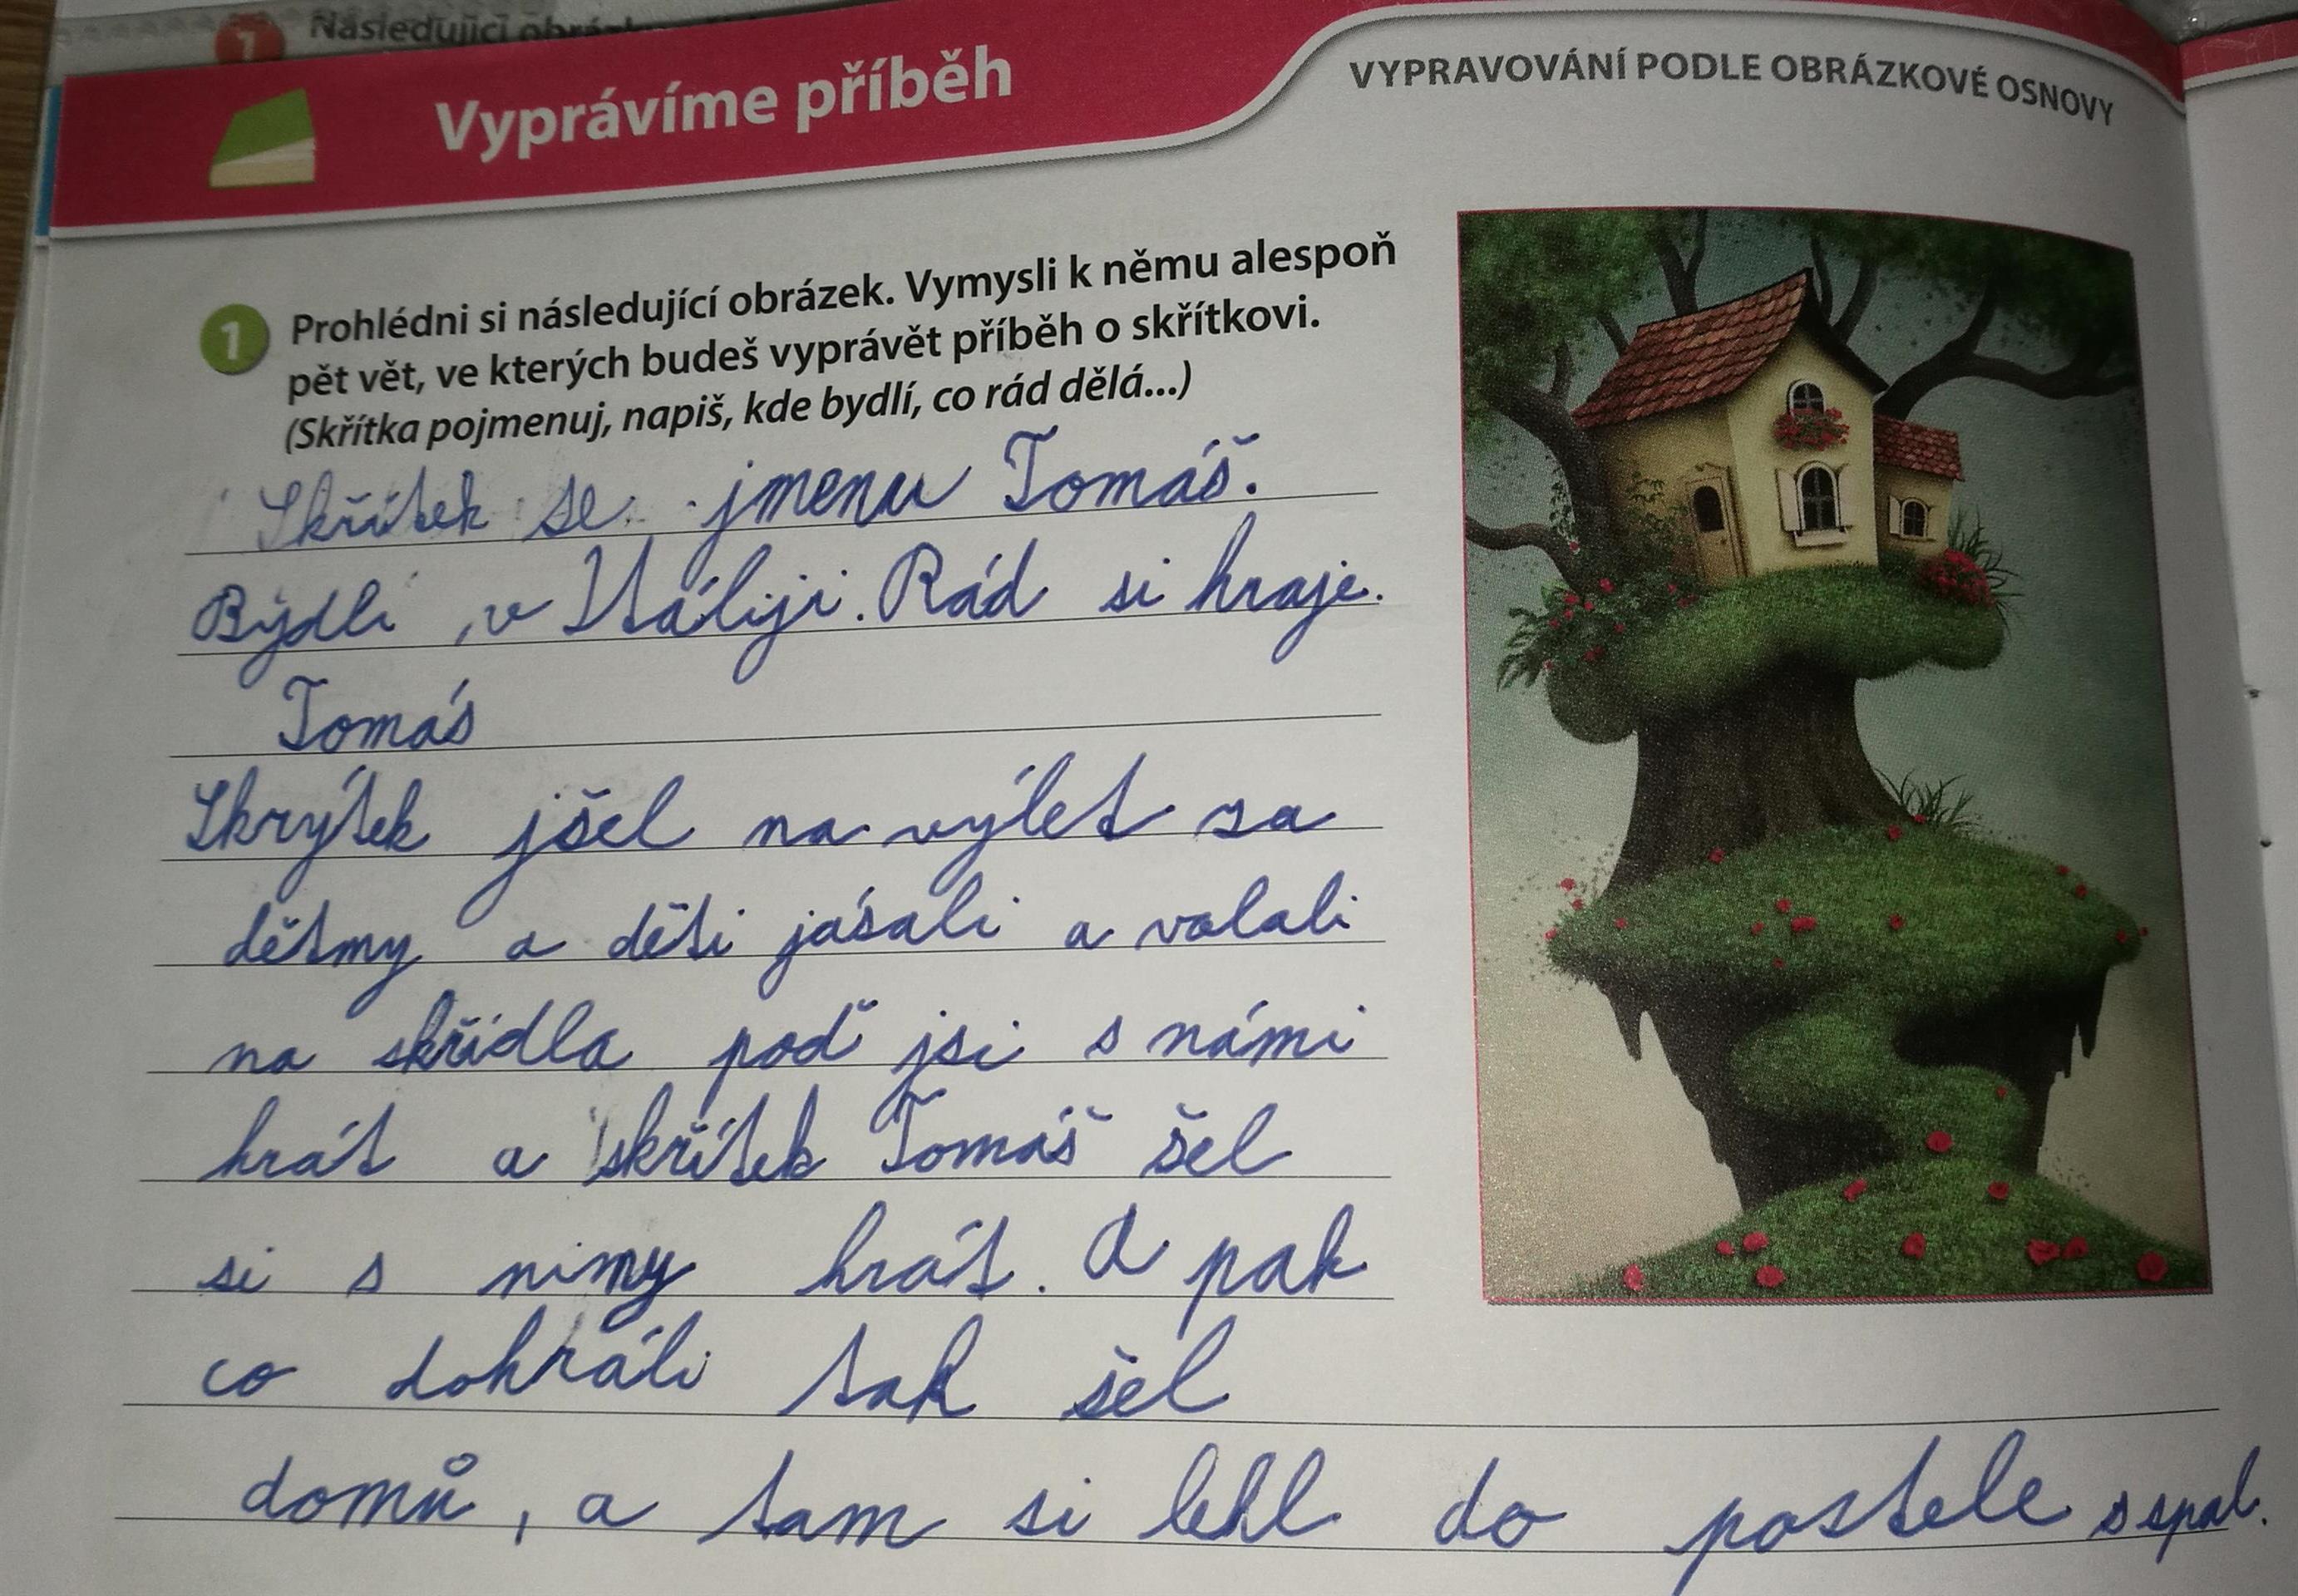 1 Následující
Vyprávíme příběh
VYPRAVOVÁNÍ PODLE OBRÁZKOVÉ OSNOVY
1 Prohlédni si následující obrázek. Vymysli k němu alespoň
pět vět, ve kterých budeš vyprávět příběh o skřítkovi.
(Skřítka pojmenuj, napiš, kde bydlí, co rád dělá...)
Skřítek se jmenu Tomáš.
Bydlí, v Itáliji. Rád si hraje.
Tomás
Skrýtek jšel na výlet za
dětmy a děti jásali a volali
na skřídla poď jsi s námi
hrát a skřítek Tomáš šel
si s nimy hrát. A pak
co dohráli tak šel
domů, a tam si lehl do postele s spal.